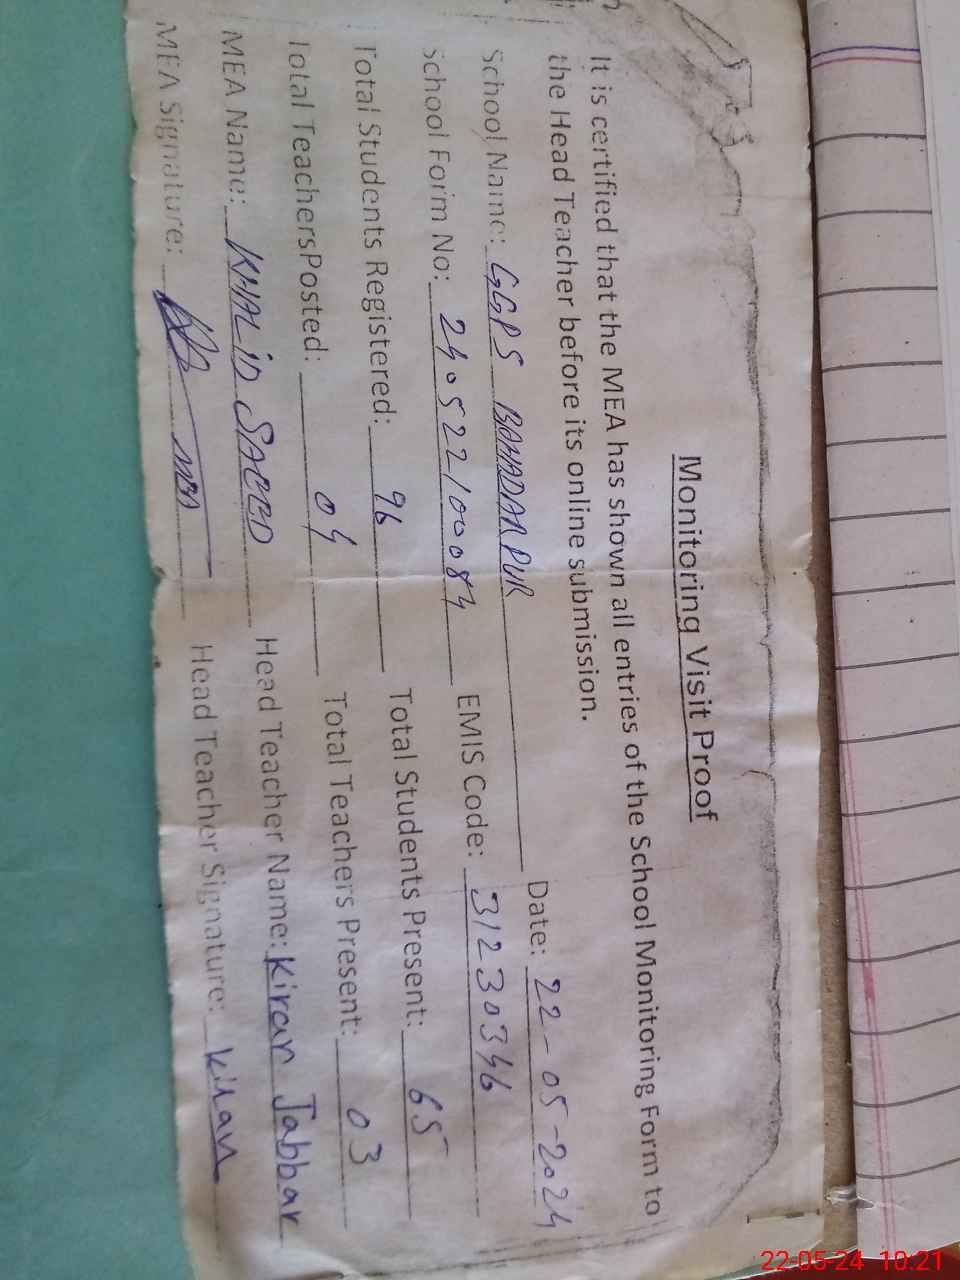 Monitoring Visit Proof
It is certified that the MEA has shown all entries of the School Monitoring Form to
the Head Teacher before its online submission.
Date: 22-05-2024
School Name: GGPS BAHADAR PUR
School Form No: 240522100084 EMIS Code: 31230346
Total Students Registered: 96 Total Students Present: 65
Total TeachersPosted: 04 Total Teachers Present: 03
MEA Name: KHALID SAEED Head Teacher Name: Kiran Jabbar
MEA Signature: MEA Head Teacher Signature: Kiran
22-05-24 10:21